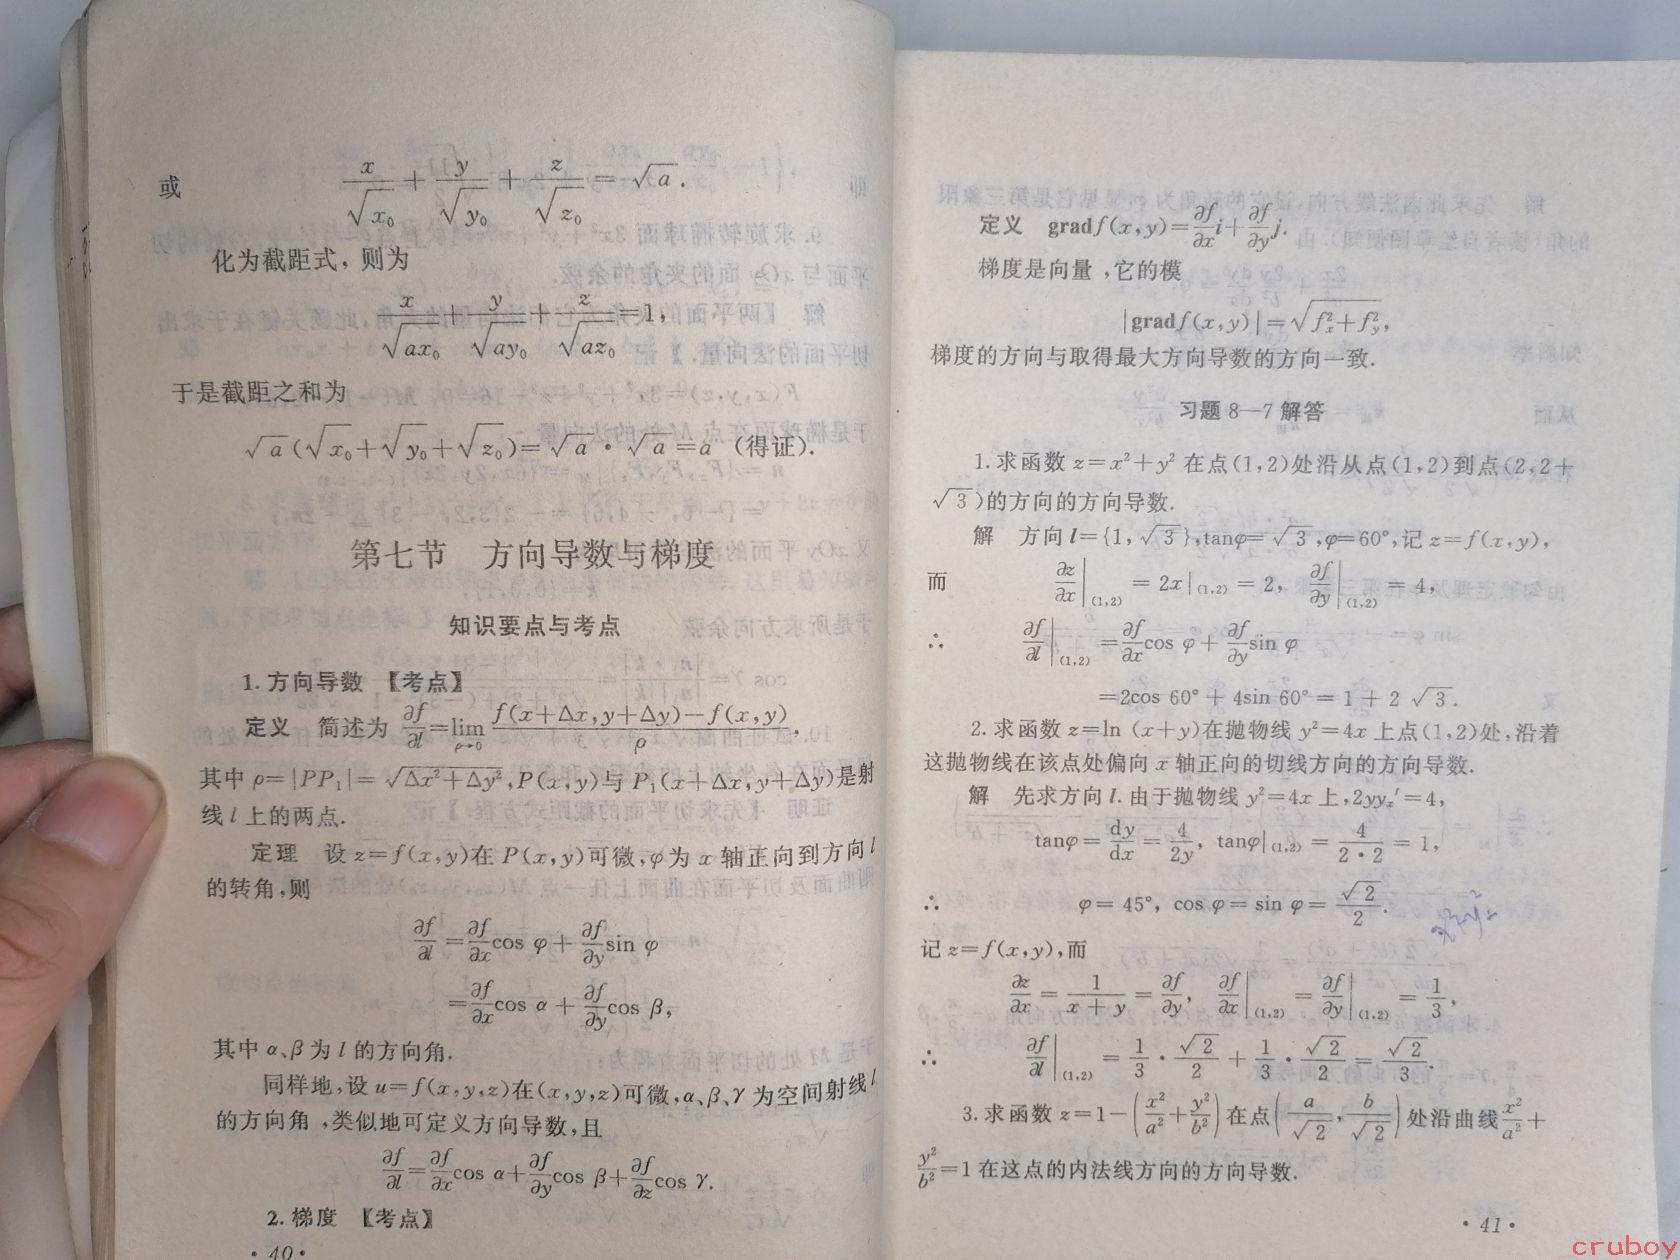 或 x/√x₀ + y/√y₀ + z/√z₀ = √a.
化为截距式，则为
x/√ax₀ + y/√ay₀ + z/√az₀ = 1,
于是截距之和为
√a(√x₀+√y₀+√z₀)=√a·√a=a (得证).
第七节 方向导数与梯度
知识要点与考点
1.方向导数 【考点】
定义 简述为 ∂f/∂l=lim_{ρ→0} [f(x+Δx,y+Δy)-f(x,y)]/ρ,
其中 ρ=|PP₁|=√(Δx²+Δy²),P(x,y)与 P₁(x+Δx,y+Δy)是射
线 l 上的两点.
定理 设 z=f(x,y)在 P(x,y)可微,φ为 x 轴正向到方向 l
的转角,则
∂f/∂l = ∂f/∂x cos φ + ∂f/∂y sin φ
= ∂f/∂x cos α + ∂f/∂y cos β,
其中 α、β 为 l 的方向角.
同样地,设 u=f(x,y,z)在(x,y,z)可微,α、β、γ 为空间射线 l
的方向角,类似地可定义方向导数,且
∂f/∂l = ∂f/∂x cos α + ∂f/∂y cos β + ∂f/∂z cos γ.
2.梯度 【考点】
·40·
定义 gradf(x,y)= ∂f/∂x i + ∂f/∂y j.
梯度是向量,它的模
|gradf(x,y)|=√(f_x²+f_y²),
梯度的方向与取得最大方向导数的方向一致.
习题 8—7 解答
1.求函数 z=x²+y² 在点(1,2)处沿从点(1,2)到点(2,2+
√3)的方向的方向导数.
解 方向 l={1,√3},tanφ=√3,φ=60°,记 z=f(x,y),
而 ∂z/∂x|(1,2) = 2x|(1,2) = 2, ∂f/∂y|(1,2) = 4,
∴ ∂f/∂l|(1,2) = ∂f/∂x cos φ + ∂f/∂y sin φ
=2cos 60° + 4sin 60° = 1 + 2√3.
2.求函数 z=ln (x+y)在抛物线 y²=4x 上点(1,2)处,沿着
这抛物线在该点处偏向 x 轴正向的切线方向的方向导数.
解 先求方向 l.由于抛物线 y²=4x 上,2yyₓ′=4,
tanφ = dy/dx = 4/2y, tanφ|(1,2) = 4/(2·2) = 1,
∴ φ= 45°, cos φ= sin φ= √2/2.
x²+y²
记 z=f(x,y),而
∂z/∂x = 1/(x+y) = ∂f/∂y, ∂f/∂x|(1,2) = ∂f/∂y|(1,2) = 1/3,
∴ ∂f/∂l|(1,2) = 1/3·√2/2 + 1/3·√2/2 = √2/3.
3.求函数 z=1-(x²/a²+y²/b²)在点(a/√2, b/√2)处沿曲线 x²/a² +
y²/b²=1 在这点的内法线方向的方向导数.
·41·
cruboy